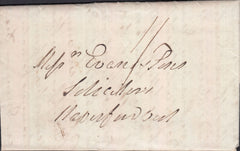 11
Mess.rs Evans & Sons
Solicitors
Haverfordwest